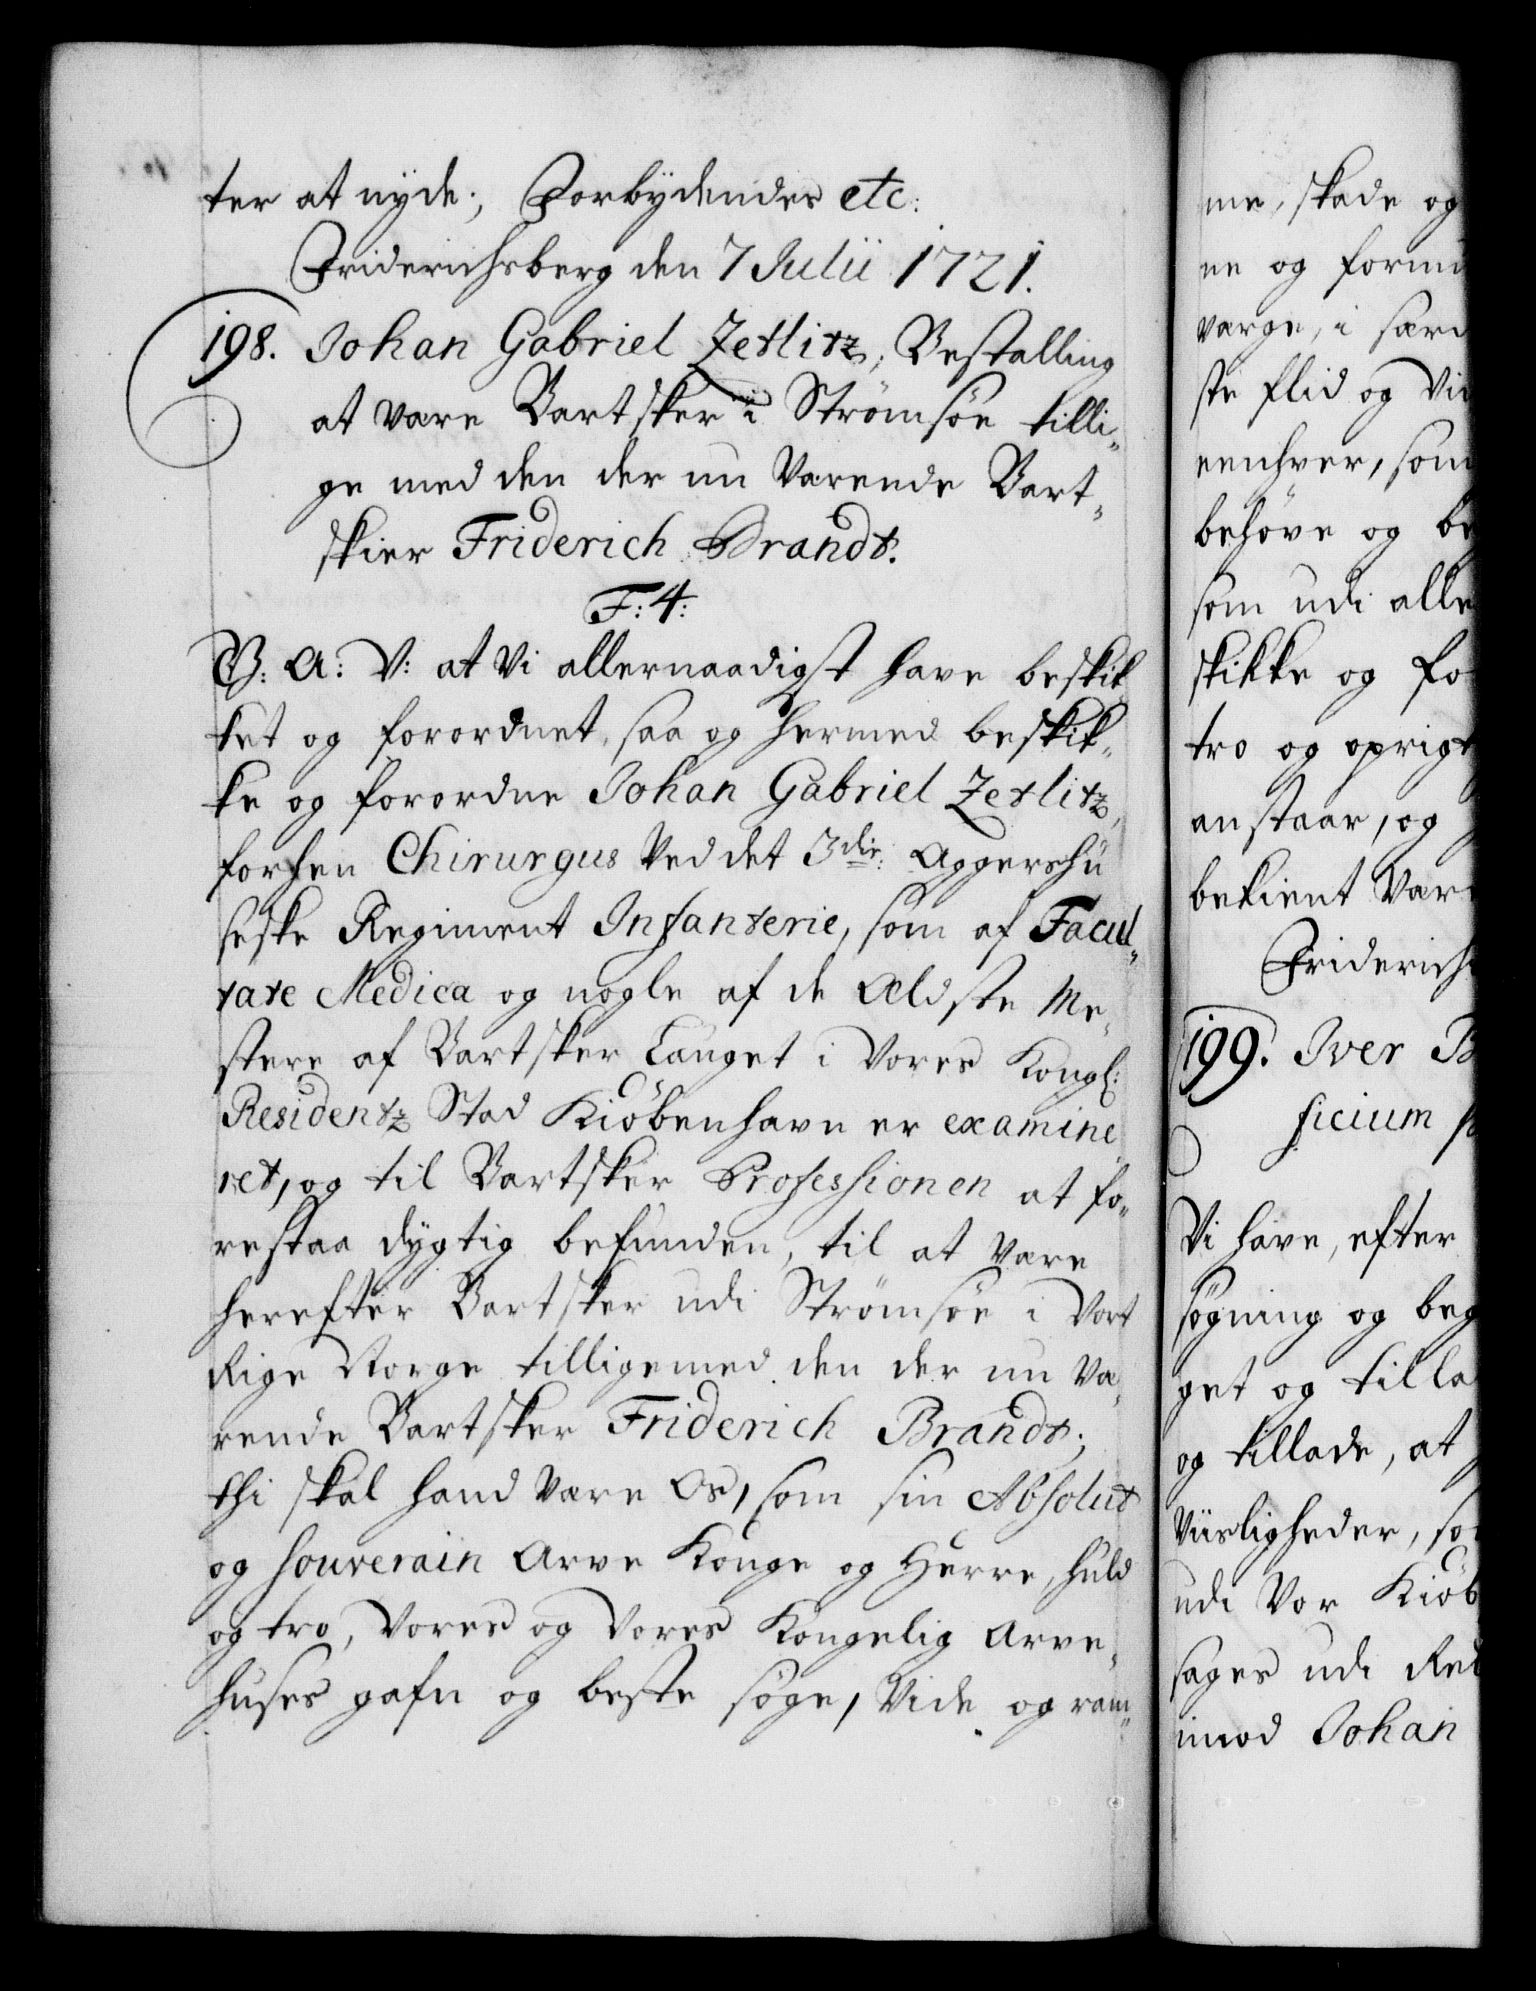 ter at nyde; Forbydendes etc:
Friderichsberg den 7 Julii 1721.
198. Johan Gabriel Zetlitz, Bestalling
at være Bartsker i Strømsøe tilli-
ge med den der nu værende Bart-
skier Friderich Brandt.
F: 4:
G: A: V: at Vi allernaadigst have beskik-
ket og forordnet, saa og hermed beskik-
ke og forordne Johan Gabriel Zetlitz,
forhen Chirurgus ved det 3die Aggershu
seske Regiment Infanterie, som af Facul-
tate Medica og nogle af de Ældste Me-
stere af Bartsker Lauget i Vores Kongl:
Residentz Stad Kiöbenhavn er examine
ret, og til Bartsker Professionen at fo-
restaa dygtig befunden, til at være
herefter Bartsker udi Strømsøe i Vort
Rige Norge tilligemed den der nu væ-
rende Bartsker Friderich Brandt;
thi skal hand være Os, som sin Absolut
og souverain Arve Konge og Herre, huld
og tro, Vores og Vores Kongelig Arve-
huses gafn og beste søge, Vide og ram-
me, skade og
ne og formu
værge, i sær
ste flid og Vi
eenhver, som
behøve og be
som udi alle
skikke og fo
tro og oprigt
anstaar, og
bekient Vær
Friderichs
199. Iver B
ficium
Vi have, efter
søgning og beg
get og tilla
og tillade, at
Viisligheder, so
udi Vor Kiöb
sages udi Re
imod Johan